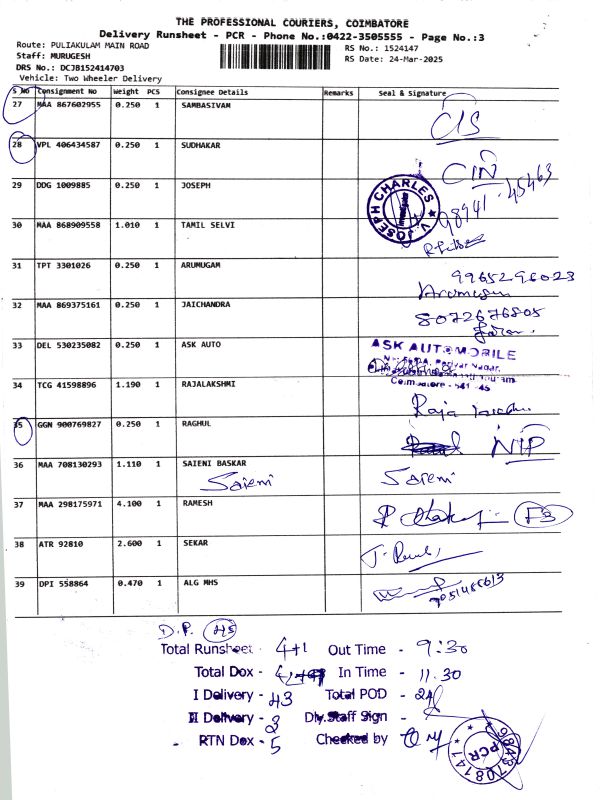 THE PROFESSIONAL COURIERS, COIMBATORE
Delivery Runsheet - PCR - Phone No.:0422-3505555 - Page No.:3
Route: PULIAKULAM MAIN ROAD
RS No.: 1524147
Staff: MURUGESH
RS Date: 24-Mar-2025
DRS No.: DCJB152414703
Vehicle: Two Wheeler Delivery
S No Consignment No Weight PCS Consignee Details Remarks Seal & Signature
27 MAA 867602955 0.250 1 SAMBASIVAM
CIS
28 VPL 406434587 0.250 1 SUDHAKAR
CIN
29 DDG 1009885 0.250 1 JOSEPH
V. JOSEPH CHARLES
98941-45463
30 MAA 868909558 1.010 1 TAMIL SELVI
31 TPT 3301026 0.250 1 ARUMUGAM
9965296023
Arumugam
32 MAA 869375161 0.250 1 JAICHANDRA
8072676805
33 DEL 530235082 0.250 1 ASK AUTO
ASK AUTOMOBILE
Coimbatore - 641 045
34 TCG 41598896 1.190 1 RAJALAKSHMI
Raja
35 GGN 900769827 0.250 1 RAGHUL
NIP
36 MAA 708130293 1.110 1 SAIENI BASKAR
Saieni Saieni
37 MAA 298175971 4.100 1 RAMESH
F3
38 ATR 92810 2.600 1 SEKAR
39 DPI 558864 0.470 1 ALG MHS
D.P. 45
Total Runsheet - 4+1 Out Time - 9:30
Total Dox - In Time - 11.30
I Delivery - 43 Total POD - 24
II Delivery - 2 Dly.Staff Sign -
RTN Dox - 5 Checked by
PCR
9843708141